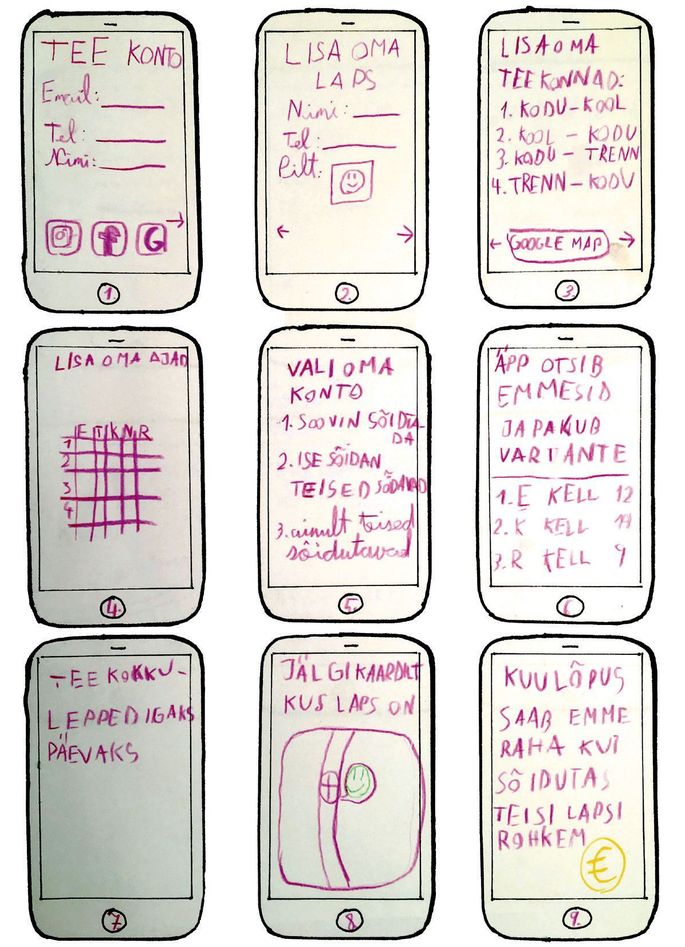 TEE KONTO
Email:
Tel:
Nimi:
G
1.
LISA OMA
LAPS
Nimi:
Tel:
Pilt:
2.
LISA OMA
TEEKONNAD:
1. KODU-KOOL
2. KOOL - KODU
3. KODU - TRENN
4. TRENN-KODU
GOOGLE MAP
3.
LISA OMA AJAD
E T K N R
1
2
3
4
4.
VALI OMA
KONTO
1. SOOVIN SÕIDUTA-
DA
2. ISE SÕIDAN
TEISED SÕIDAVAD
3. ainult teised
sõidutavad
5.
ÄPP OTSIB
EMMESID
JA PAKUB
VARIANTE
1. E KELL 12
2. K KELL
3. R KELL 9
6
TEE KOKKU-
LEPPED IGAKS
PÄEVAKS
7
JÄLGI KAARDILT
KUS LAPS ON
8
KUU LÕPUS
SAAB EMME
RAHA KUI
SÕIDUTAS
TEISI LAPSI
ROHKEM
€
9.